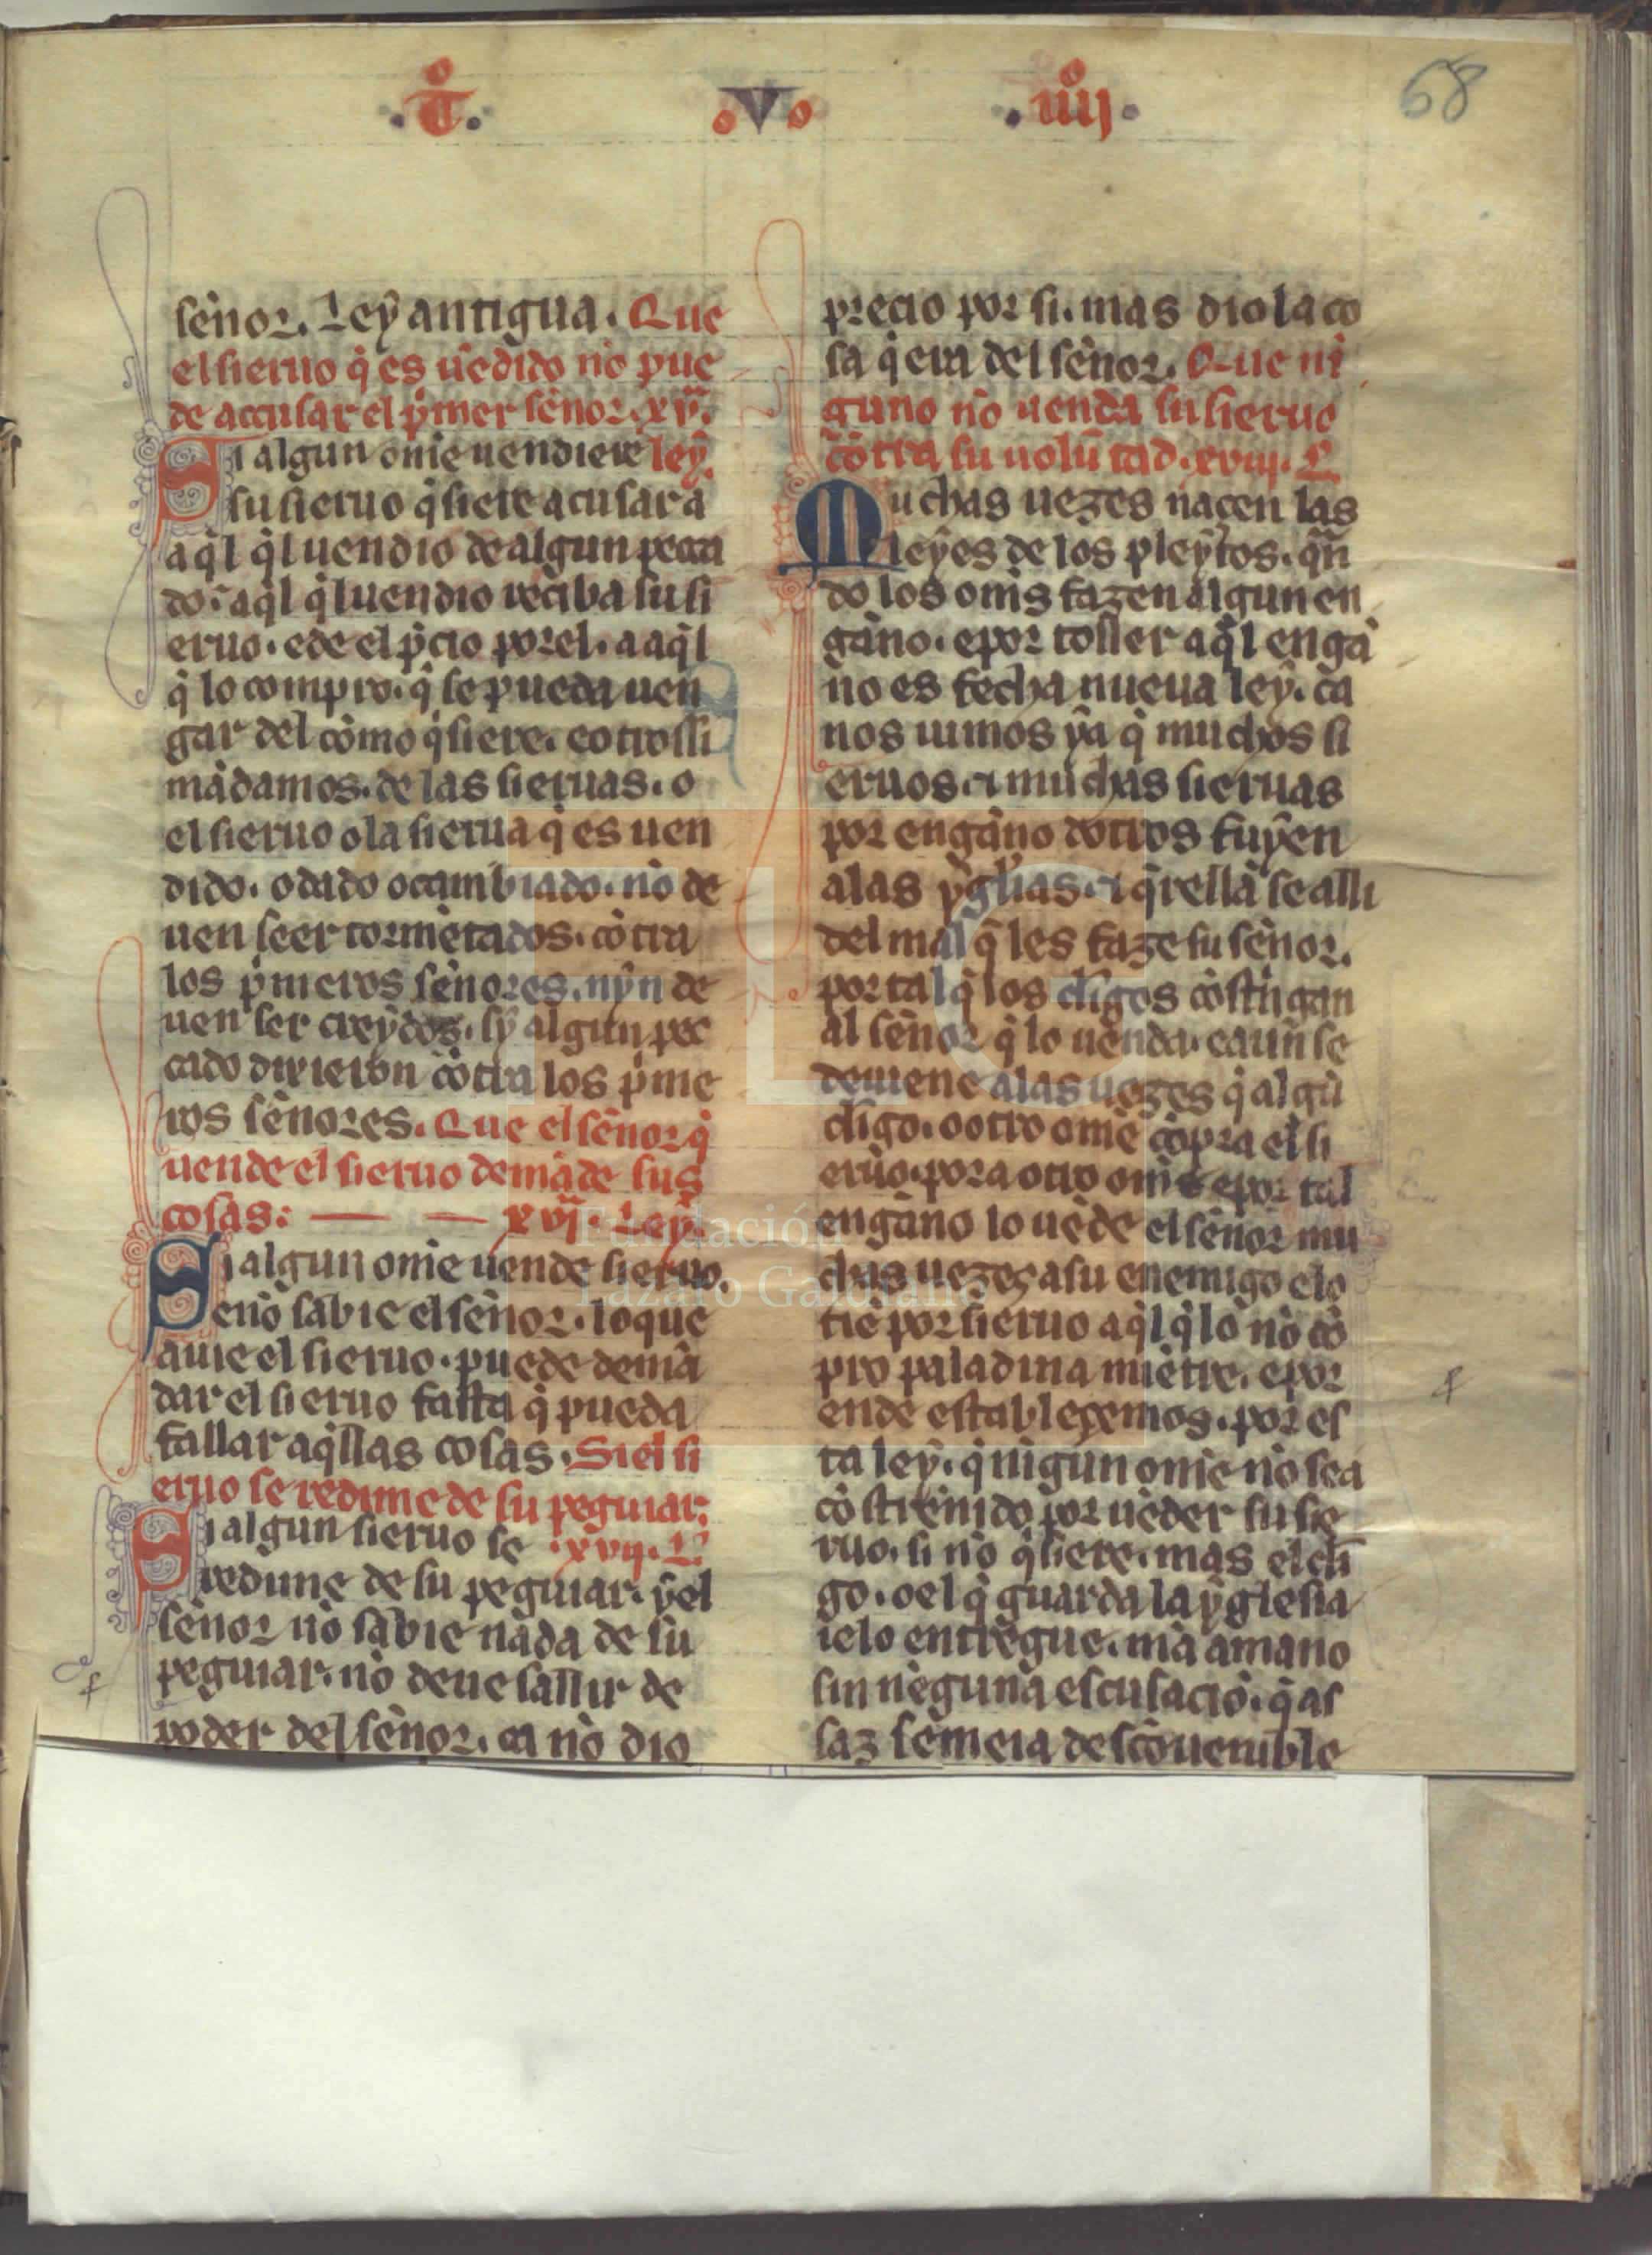 .T. V .iiij.
68
señor. Ley antigua. Que
el sieruo q̇ es uēdido nō pue
de accusar el p̄mer señor. xv.
Si algun ome uendiere ley.
su sieruo q̇siere acusar a
aq̇l q̇l uendio de algun pecca
do. aq̇l q̇l uendio reciba su si
eruo. e de el p̄cio por el. a aq̇l
q̇ lo compro. q̇ se pueda uen
gar del cōmo q̇siere. e otrossi
mādamos. de las sieruas. o
el sieruo o la sierua q̇ es uen
dido. o dado o cambiado. nō de
uen seer tormētados. cōtra
los p̄meros señores. nyn de
uen ser creydos. sy algun pec
cado dixieron cōtra los p̄me
ros señores. Que el señor q̇
uende el sieruo demāde sus
cosas: xvi. Ley.
Si algun ome uende sieruo.
e nō sabie el señor. lo que
auie el sieruo. puede demā
dar el sieruo fasta q̇ pueda
fallar aq̇llas cosas. Si el si
eruo se redime de su peguiar.
Si algun sieruo se .xvij. L.
redime de su peguiar. y el
señor nō sabie nada de su
peguiar. nō deue sallir de
poder del señor. ca nō dio
precio por si. mas dio la co
sa q̇ era del señor. Que ni
guno nō uenda su sieruo
cōtra su uolūtad. xviij. L.
Muchas uezes nacen las
leyes de los pleytos. q̄n
do los om̄s fazen algun en
gano. e por toller aq̇l enga
no es fecha nueua ley. ca
nos uimos ya q̇ muchos si
eruos. ⁊ muchas sieruas
por engano dotros fuyen
a las yḡlias. ⁊ q̇rellā se alli
del mal q̇ les faze su señor.
por tal q̇ los cl̄igos cōstn̄gan
al señor q̇ lo uenda. e aun se
deuiene a las uezes q̇ algū
cl̄igo. o otro ome cōpra el si
eruo. pora otro ome e por tal
engano lo uēde el señor mu
chas uezes a su enemigo e lo
tiē por sieruo aq̇l q̇ lo nō cō
pro paladina miētre. e por
ende establecemos. por es
ta ley. q̇ nīgun ome nō sea
cōstrenido por uēder su sie
ruo. si nō q̇siere. mas el cl̄i
go. o el q̇ guarda la yglesia
ielo entregue. mā a mano
sin nēguna escusaciō. q̇ as
saz semeia descōuenible
Fundación
Lázaro Galdiano